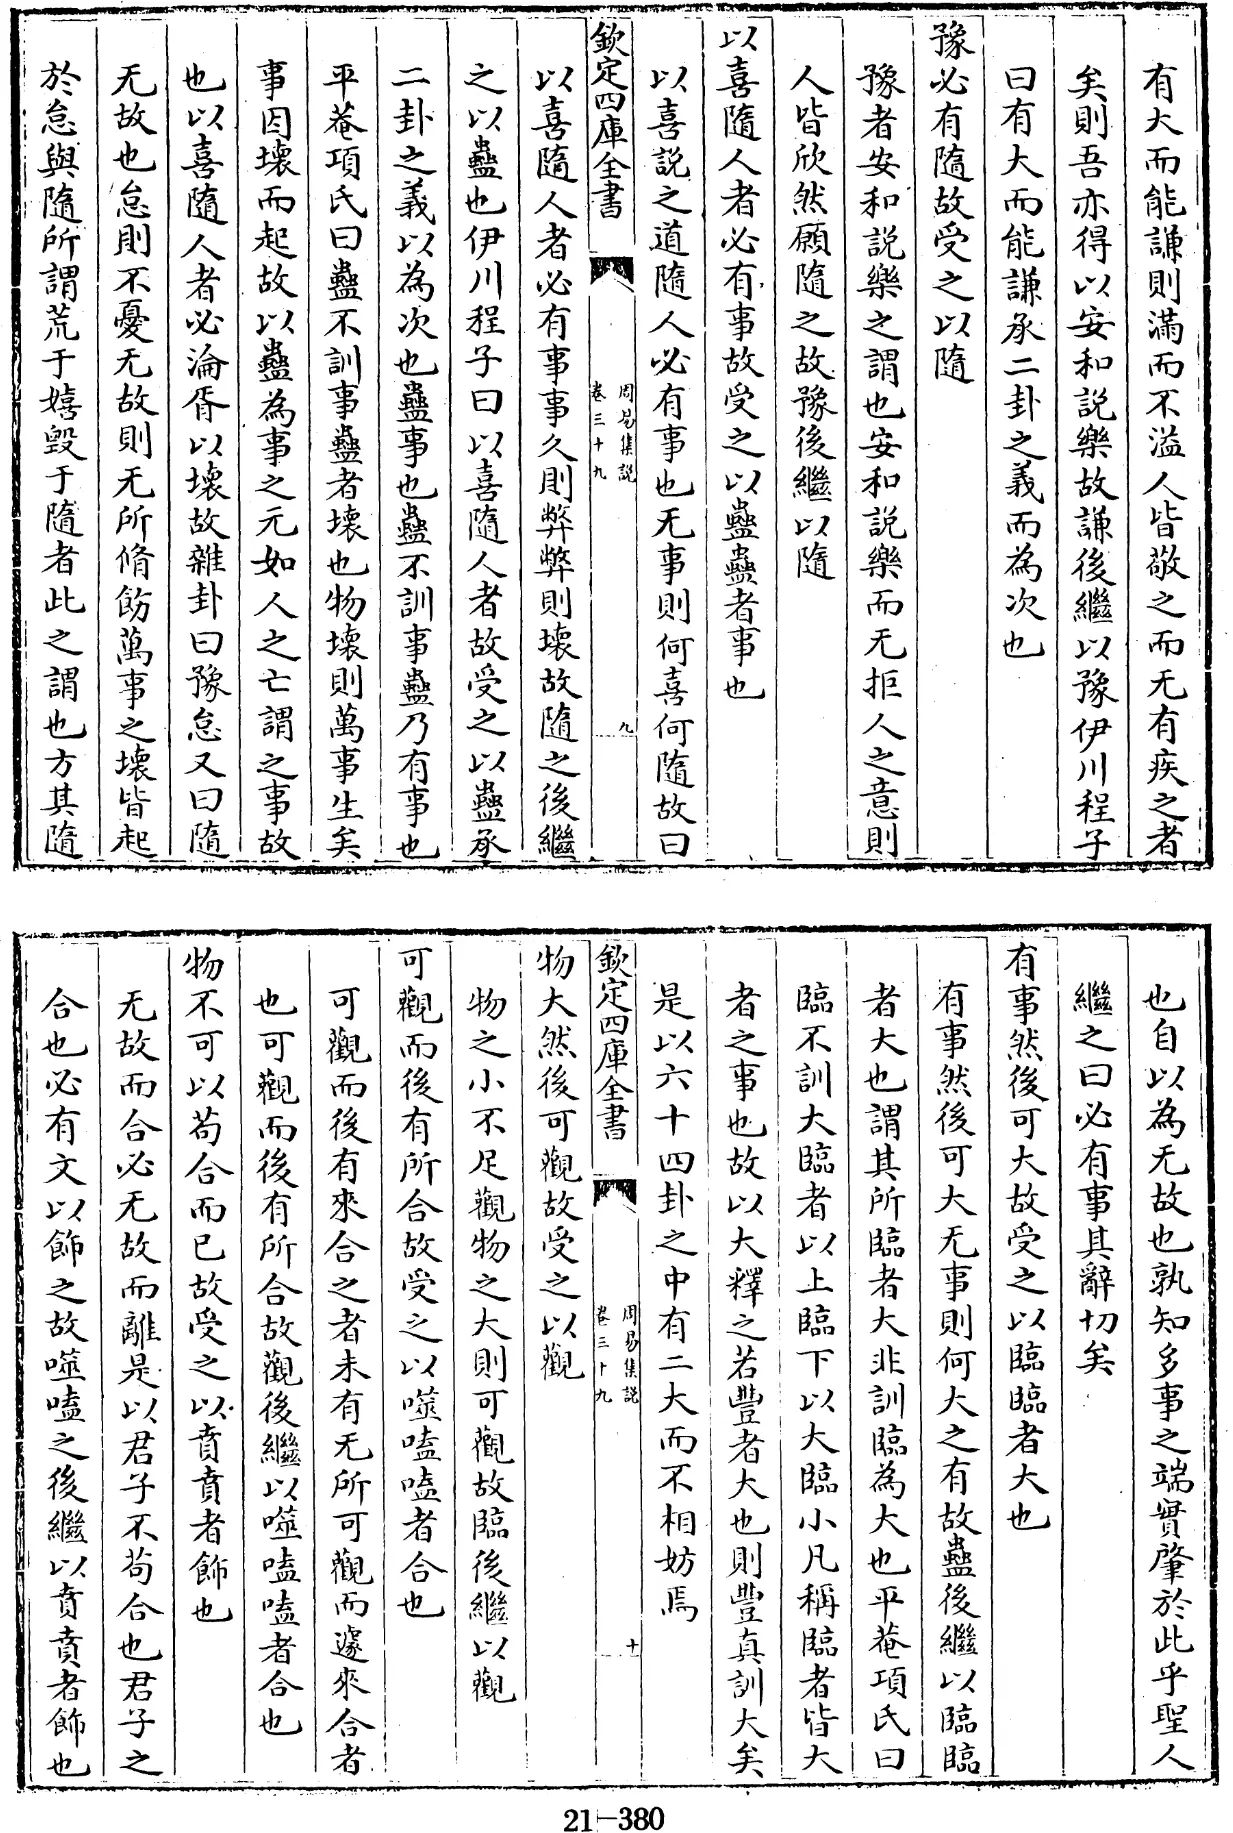 有大而能謙則滿而不溢人皆敬之而无有疾之者
矣則吾亦得以安和説樂故謙後繼以豫伊川程子
曰有大而能謙承二卦之義而為次也
豫必有隨故受之以隨
豫者安和説樂之謂也安和説樂而无拒人之意則
人皆欣然願隨之故豫後繼以隨
以喜隨人者必有事故受之以蠱蠱者事也
以喜説之道隨人必有事也无事則何喜何隨故曰
欽定四庫全書
周易集説
卷三十九
九
以喜隨人者必有事事久則弊弊則壞故隨之後繼
之以蠱也伊川程子曰以喜隨人者故受之以蠱承
二卦之義以為次也蠱事也蠱不訓事蠱乃有事也
平菴項氏曰蠱不訓事蠱者壞也物壞則萬事生矣
事因壞而起故以蠱為事之元如人之亡謂之事故
也以喜隨人者必淪胥以壞故雜卦曰豫怠又曰隨
无故也怠則不憂无故則无所脩飭萬事之壞皆起
於怠與隨所謂荒于嬉毀于隨者此之謂也方其隨
也自以為无故也孰知多事之端實肇於此乎聖人
繼之曰必有事其辭切矣
有事然後可大故受之以臨臨者大也
有事然後可大无事則何大之有故蠱後繼以臨臨
者大也謂其所臨者大非訓臨為大也平菴項氏曰
臨不訓大臨者以上臨下以大臨小凡稱臨者皆大
者之事也故以大釋之若豐者大也則豐真訓大矣
是以六十四卦之中有二大而不相妨焉
欽定四庫全書
周易集説
卷三十九
十
物大然後可觀故受之以觀
物之小不足觀物之大則可觀故臨後繼以觀
可觀而後有所合故受之以噬嗑嗑者合也
可觀而後有來合之者未有无所可觀而遽來合者
也可觀而後有所合故觀後繼以噬嗑嗑者合也
物不可以苟合而已故受之以賁賁者飾也
无故而合必无故而離是以君子不苟合也君子之
合也必有文以飾之故噬嗑之後繼以賁賁者飾也
21-380